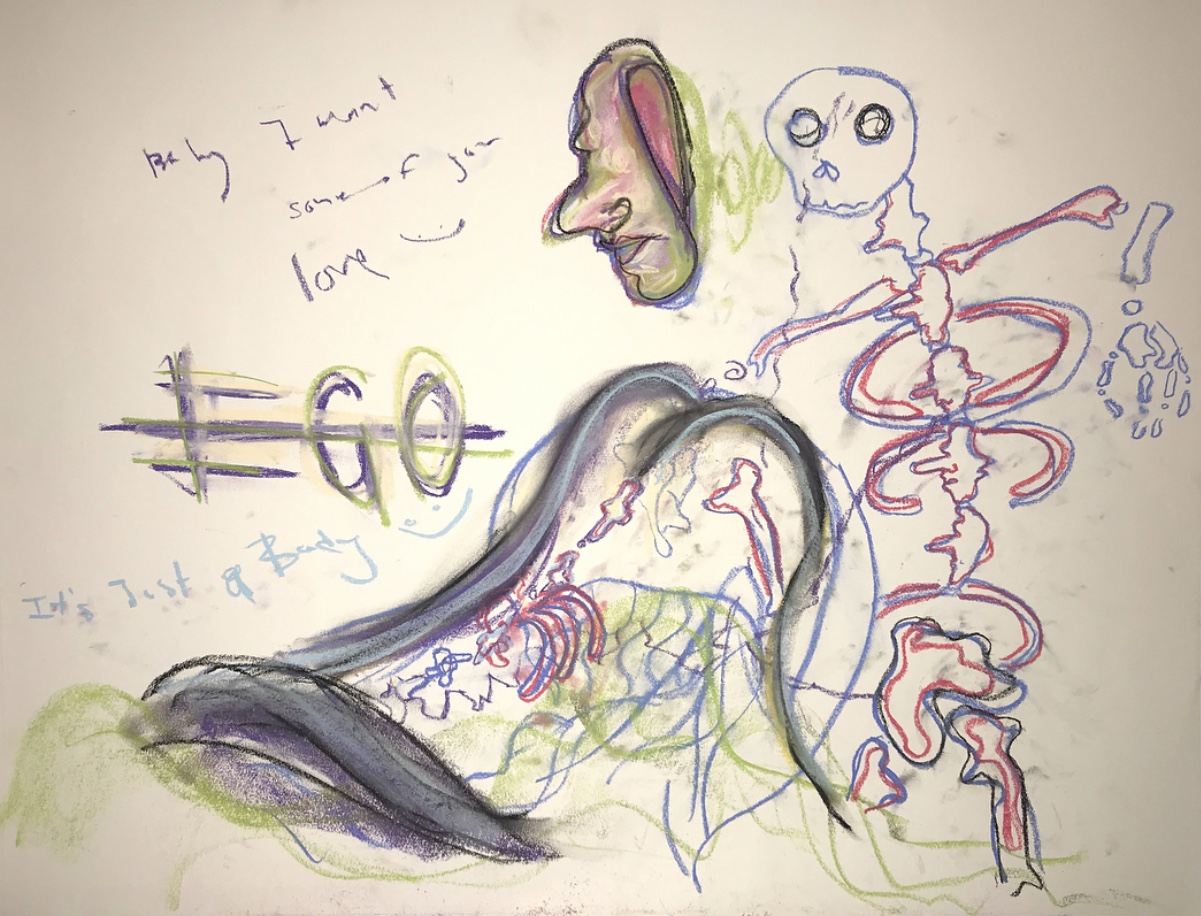 Baby I want
some of your
love
EGO
It's Just a Body